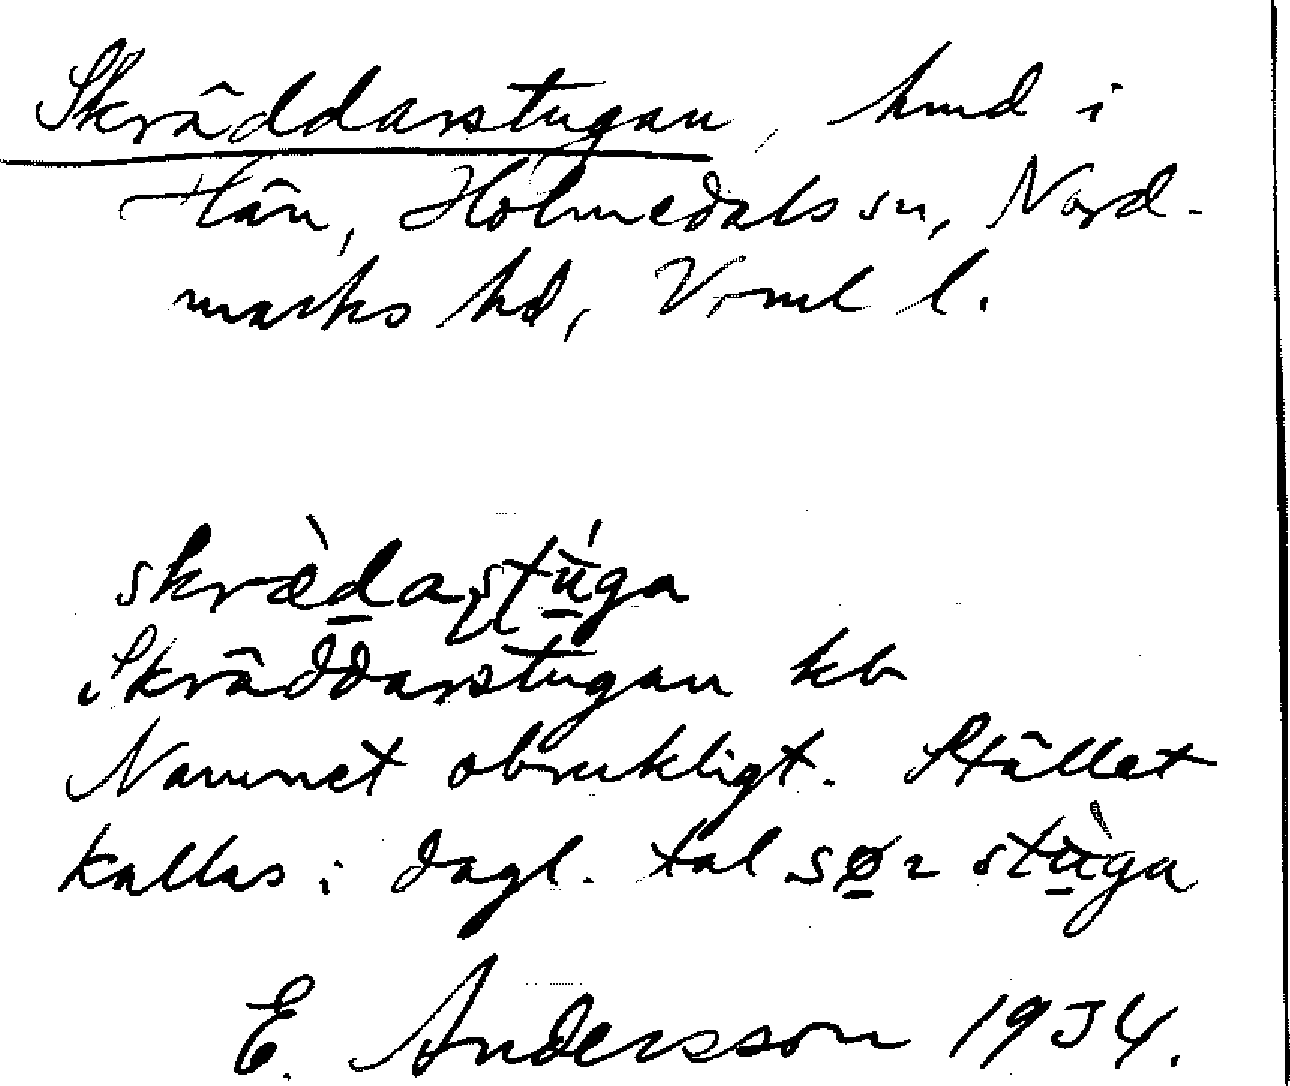 Skräddarstugan, hmd i
Hän, Holmedals sn, Nord-
marks hd, Vrml l.
skræ̀da stúga
Skräddarstugan kb
Namnet obrukligt. Stället
kallas i dagl. tal sør stùga
E. Andersson 1934.